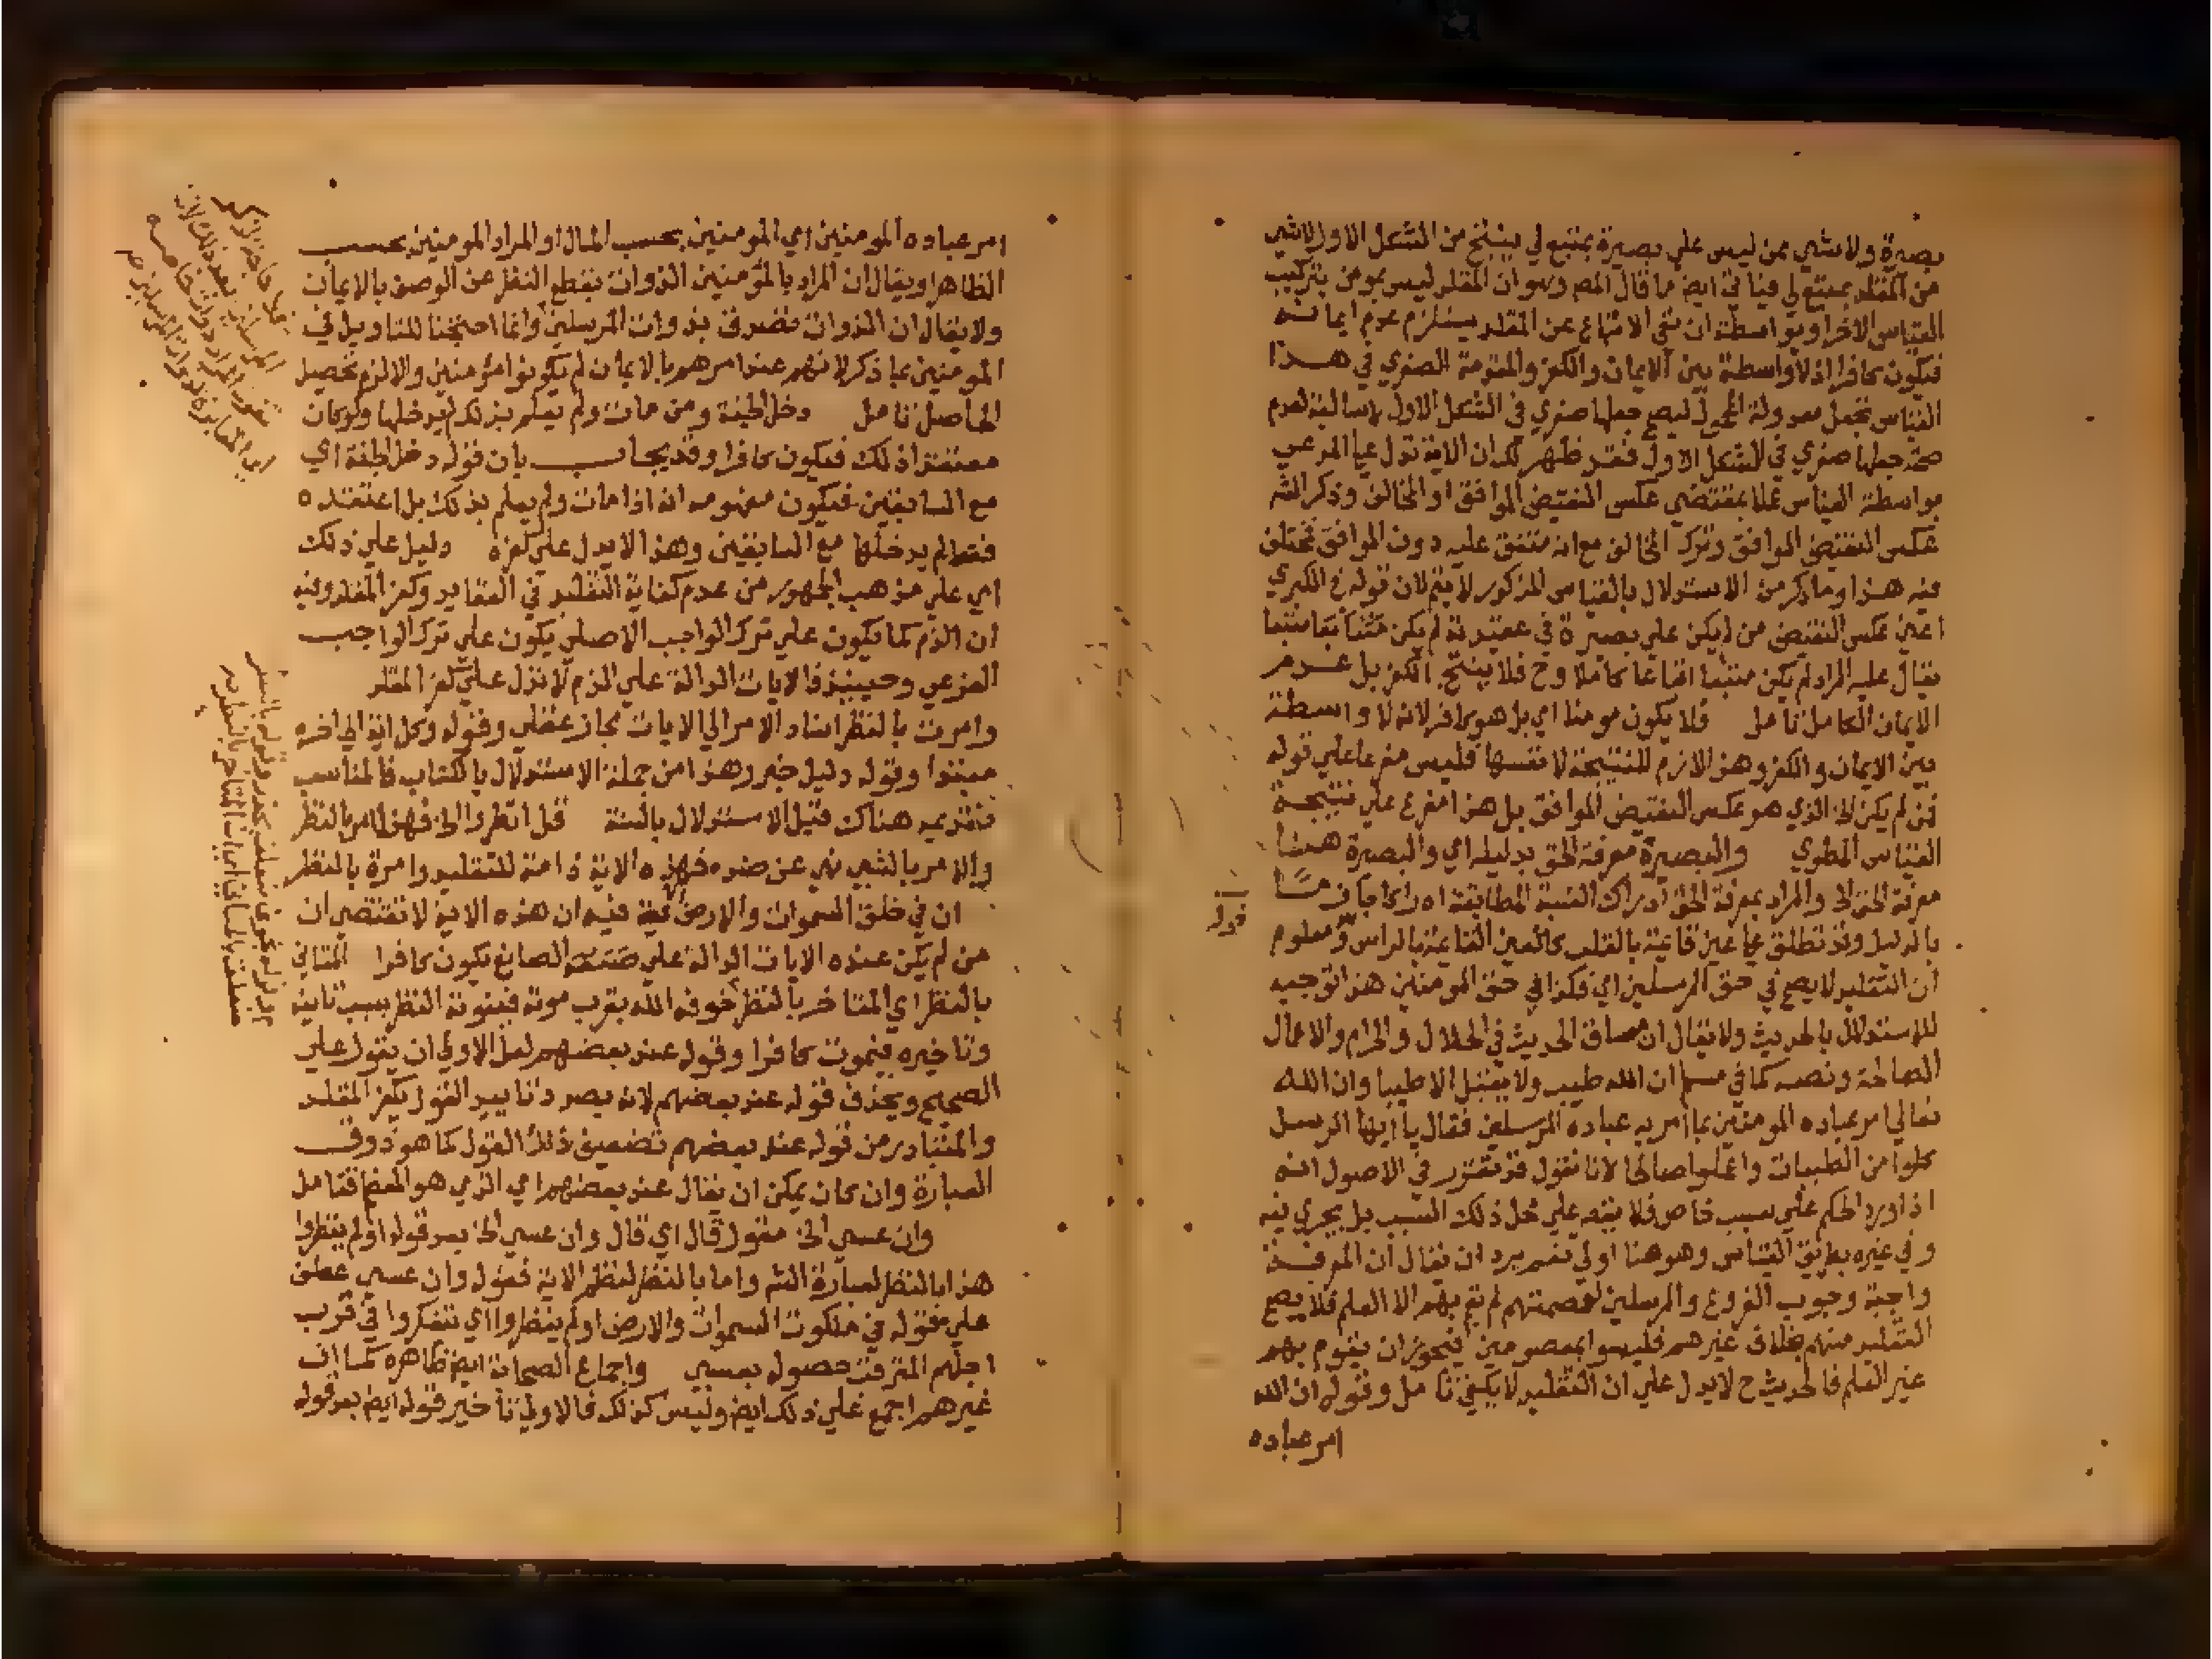 بصيرة ولا شي ممن ليس علي بصيرة بمتبع لي ينتج من الشكل الاول لا شي
من المقلد بمتبع لي فيا في ايضا ما قال المص وهو ان المقلد ليس بمومن بتركيب
القياس الاخر او بواسطة ان نفي الاتباع عن المقلد يستلزم عدم ايمانه
فيكون كافرا اذ لا واسطة بين الايمان والكفر والمقدمة الصغري في هذا
القياس تجعل معدولة المحمول ليصح جعلها صغري في الشكل الاول لا سالبة لعدم
صحة جعلها صغري في الشكل الاول فقد ظهر لك ان الاية تدل علي المدعي
بواسطة القياس عملا بمقتضي عكس النقيض الموافق او المخالف وذكر الش
عكس النقيض الموافق وترك المخالف مع انه متفق عليه دون الموافق مختلف
فيه هذا وما ذكر من الاستدلال بالقياس المذكور لا يتم لان قوله في الكبري
اعني عكس النقيض من لم يكن علي بصيرة في عقيدته لم يكن متبعا
يقال عليه المراد لم يكن متبعا اتباعا كاملا وح فلا ينتج الكفر بل عدم
الايمان الكامل تامل فلا يكون مومنا اي بل هو كافر لانه لا واسطة
بين الايمان والكفر وهذا لازم للنتيجة لا نفسها فليس مفرعا علي قوله
فمن لم يكن الخ الذي هو عكس النقيض الموافق بل هذا مفرع علي نتيجة
القياس المطوي والبصيرة معرفة الحق بدليله اي والبصيرة هنا
معرفة الحق الخ والمراد بمعرفة الحق ادراك النسبة المطابقة
بالدليل وقد تطلق علي عين قائمة بالقلب كالعين القائمة بالراس ومعلوم
قوله
ان التقليد لا يصح في حق المرسلين اي فكذا في حق المومنين هذا توجيه
للاستدلال بالحديث ولا يقال ان مساق الحديث في الحلال والحرام والاعمال
الصالحة ونصه كما في مسلم ان الله طيب ولا يقبل الا طيبا وان الله
تعالي امر عباده المومنين بما امر به عباده المرسلين فقال يا ايها الرسل
كلوا من الطيبات واعملوا صالحا لانا نقول قد تقرر في الاصول انه
اذا ورد الحكم علي سبب خاص فلا يقصر علي محل ذلك السبب بل يجري فيه
وفي غيره بطريق القياس وهو هنا اولي نعم يرد ان يقال ان المعرفة
واجبة وجوب الفروع والمرسلين لعصمتهم لم يقم بهم الا العلم فلا يصح
التقليد منهم بخلاف غيرهم فليسوا بمعصومين فيجوز ان يقوم بهم
غير العلم فالحديث ح لا يدل علي ان التقليد لا يكفي تامل وقوله ان الله
امر عباده
امر عباده المومنين اي المومنين بحسب المال او المراد المومنين بحسب
الظاهر او يقال ان المراد بالمومنين الذوات بقطع النظر عن الوصف بالايمان
ولا يقال ان الذوات تصدق بذوات المرسلين وانما احتجنا للتاويل في
المومنين بما ذكر لانهم عند امرهم بالايمان لم يكونوا مومنين والا لزم تحصيل
الحاصل تامل دخل الجنة ومن مات ولم يعلم بذلك لم يدخلها ولو كان
معتقدا ذلك فيكون كافرا وقد يجاب بان قوله دخل الجنة اي
مع السابقين فيكون مفهومه انه اذا مات ولم يعلم بذلك بل اعتقده
فقط لم يدخلها مع السابقين وهذا لا يدل علي كفره دليل علي ذلك
اي علي مذهب الجمهور من عدم كفاية التقليد في العقايد وكفر المقلد وفيه
ان الذم كما يكون علي ترك الواجب الاصلي يكون علي ترك الواجب
الفرعي وحينيذ فالايات الدالة علي الذم لا تدل علي كفر المقلد
وامرت بالنظر اسناد الامر الي الايات مجاز عقلي وقوله وكل اية الي اخره
مبتدا وقوله دليل خبر وهذا من جملة الاستدلال بالكتاب فالمناسب
تقديمه هناك قبل الاستدلال بالسنة قل انظروا الخ فهذا امر بالنظر
والامر بالشي نهي عن ضده فهذه الاية ذامة للتقليد وامرة بالنظر
ان في خلق السموات والارض الاية فيه ان هذه الاية لا تقتضي ان
من لم يكن عنده الايات الدالة علي الصانع يكون كافرا المتاني
بالنظر اي المتاخر بالنظر خوفه الله بقرب موته فيفوته النظر بسبب تانيه
وتاخيره فيموت كافرا وقوله عند بعضهم لعل الاولي ان يقول علي
الصحيح ويحذف قوله عند بعضهم لانه بصدد تاييد القول بكفر المقلد
والمتبادر من قوله عند بعضهم تضعيف ذلك القول كما هو ذوق
العبارة وان كان يمكن ان يقال عند بعضهم اي الذي هو المعظم فتامل
وان عسي الخ مقول قال اي قال وان عسي الخ بعد قوله اولم ينظروا
هذا بالنظر لعبارة الش واما بالنظر لنظم الاية فقوله وان عسي عطف
علي قوله في ملكوت السموات والارض اولم ينظروا اي يتفكروا في قرب
اجلهم المترقب حصوله بعسي واجماع الصحابة ايضا ظاهره كما ان
غيرهم اجمع علي ذلك ايضا وليس كذلك فالاولي تاخير قوله ايضا بعد قوله